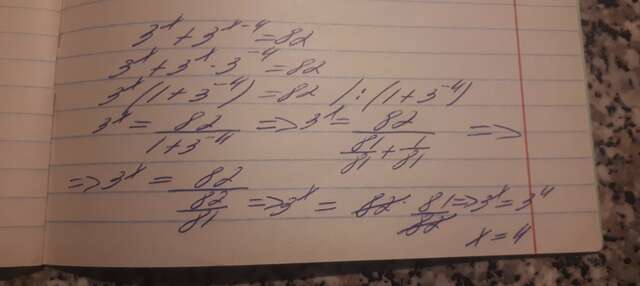 3^x + 3^{x-4} = 82
3^x + 3^x · 3^{-4} = 82
3^x (1 + 3^{-4}) = 82 / : (1 + 3^{-4})
3^x = \frac{82}{1 + 3^{-4}} => 3^x = \frac{82}{\frac{81}{81} + \frac{1}{81}} =>
=> 3^x = \frac{82}{\frac{82}{81}} => 3^x = 82 · \frac{81}{82} => 3^x = 3^4
x = 4